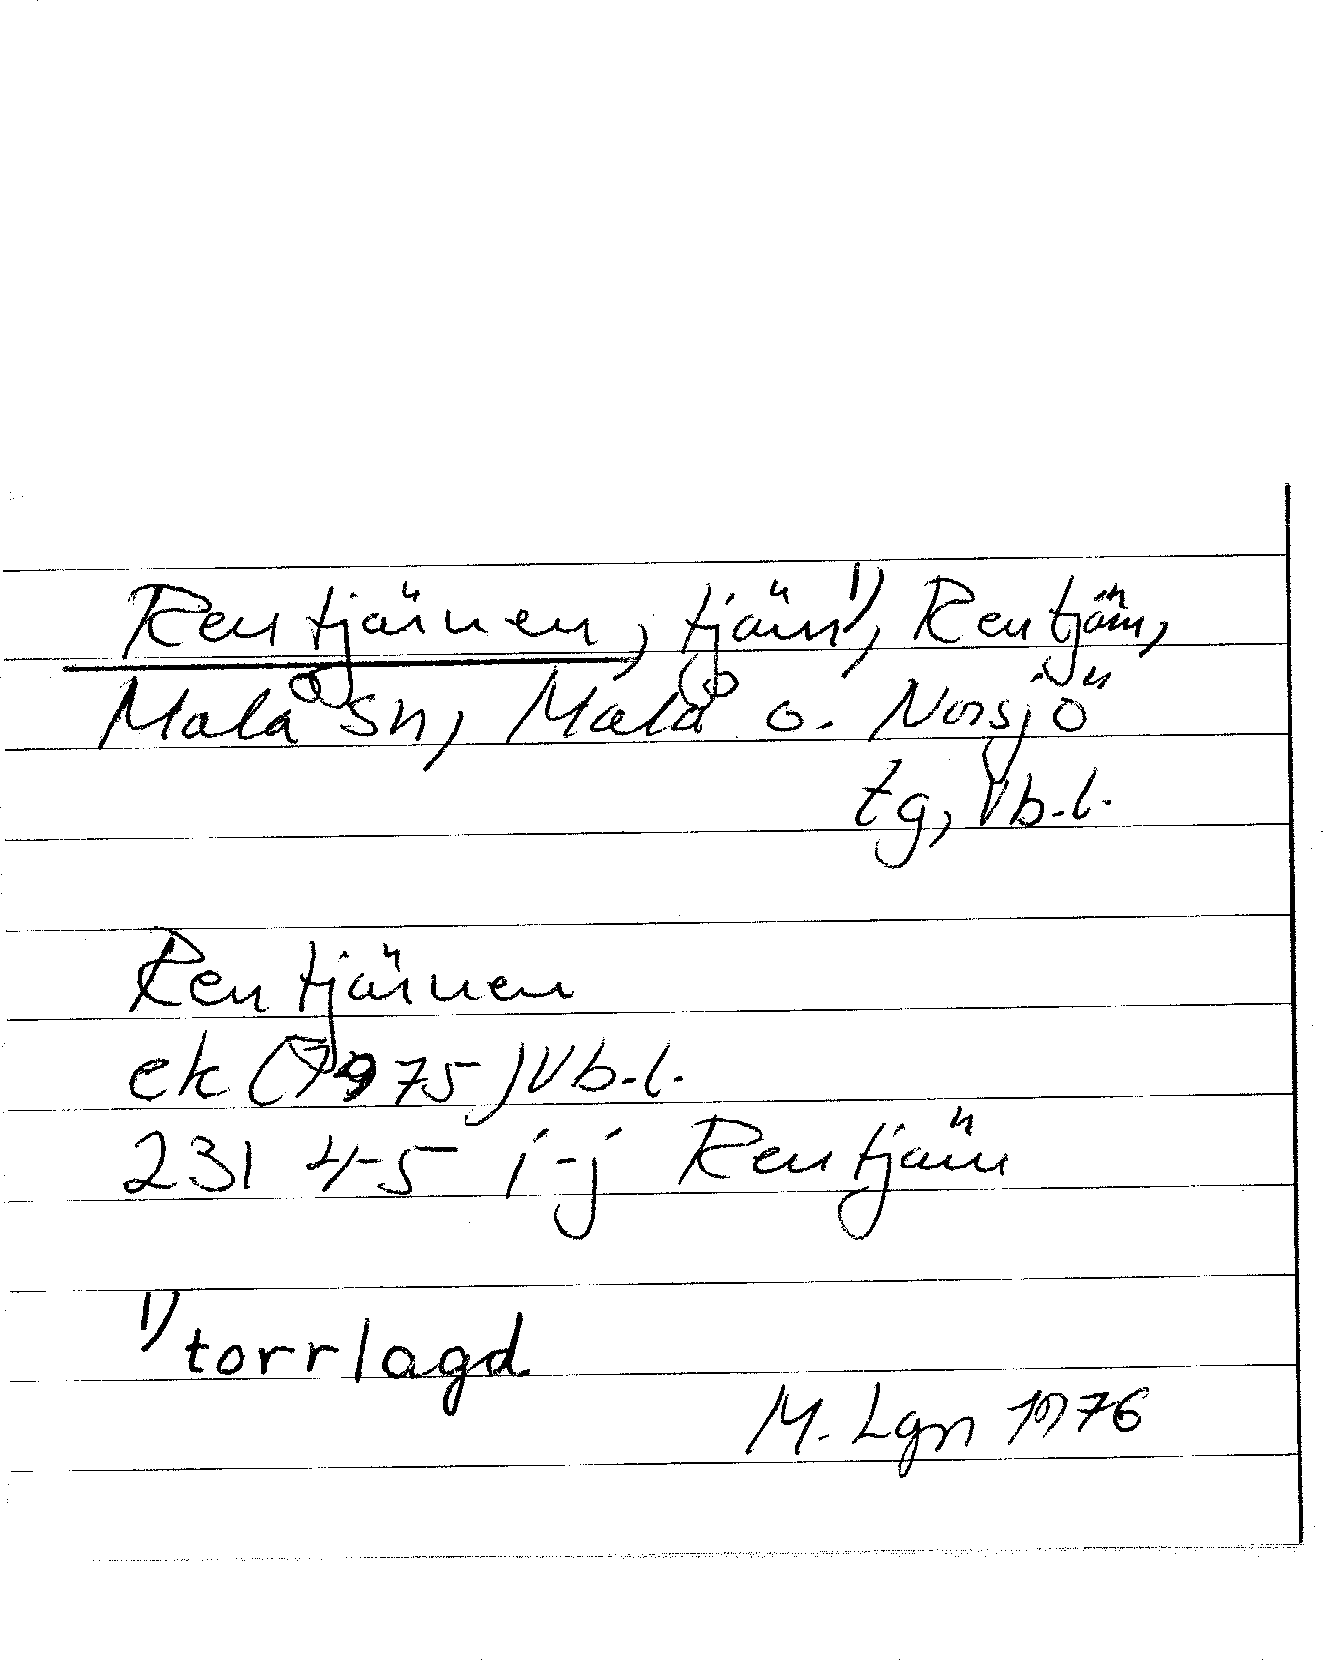 Rentjärnen, tjärn 1), Rentjärn,
Malå sn, Malå o. Norsjö
tg, Vb.l.
Rentjärnen
ek (1975) Vb.l.
231 4-5 i-j Rentjärn
1) torrlagd
M. Lgn 1976